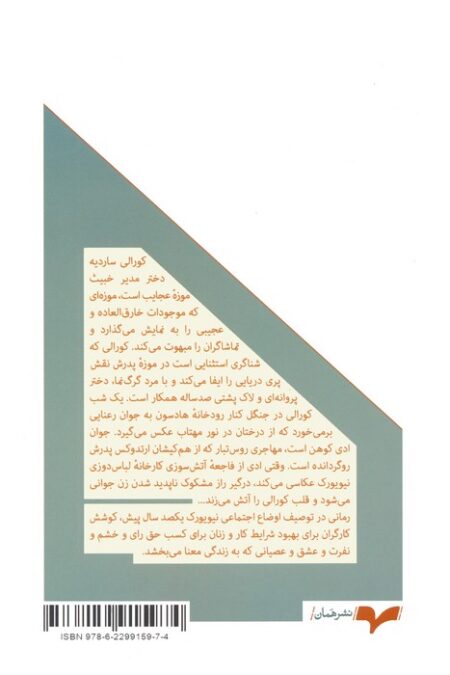 کورالی ساردیه
دختر مدیر خبیث
موزهٔ عجایب است، موزه‌ای
که موجودات خارق‌العاده و
عجیبی را به نمایش می‌گذارد و
تماشاگران را مبهوت می‌کند. کورالی که
شناگری استثنایی است در موزهٔ پدرش نقش
پری دریایی را ایفا می‌کند و با مرد گرگ‌نما، دختر
پروانه‌ای و لاک پشتی صدساله همکار است. یک شب
کورالی در جنگل کنار رودخانهٔ هادسون به جوان رعنایی
برمی‌خورد که از درختان در نور مهتاب عکس می‌گیرد. جوان
ادی کوهن است، مهاجری روس‌تبار که از هم‌کیشان ارتدوکس پدرش
روگردانده است. وقتی ادی از فاجعهٔ آتش‌سوزی کارخانهٔ لباس‌دوزی
نیویورک عکاسی می‌کند، درگیر راز مشکوک ناپدید شدن زن جوانی
می‌شود و قلب کورالی را آتش می‌زند...
رمانی در توصیف اوضاع اجتماعی نیویورک یکصد سال پیش، کوشش
کارگران برای بهبود شرایط کار و زنان برای کسب حق رای و خشم و
نفرت و عشق و عصیانی که به زندگی معنا می‌بخشد.
/نشر همان/
ISBN 978-6-2299159-7-4